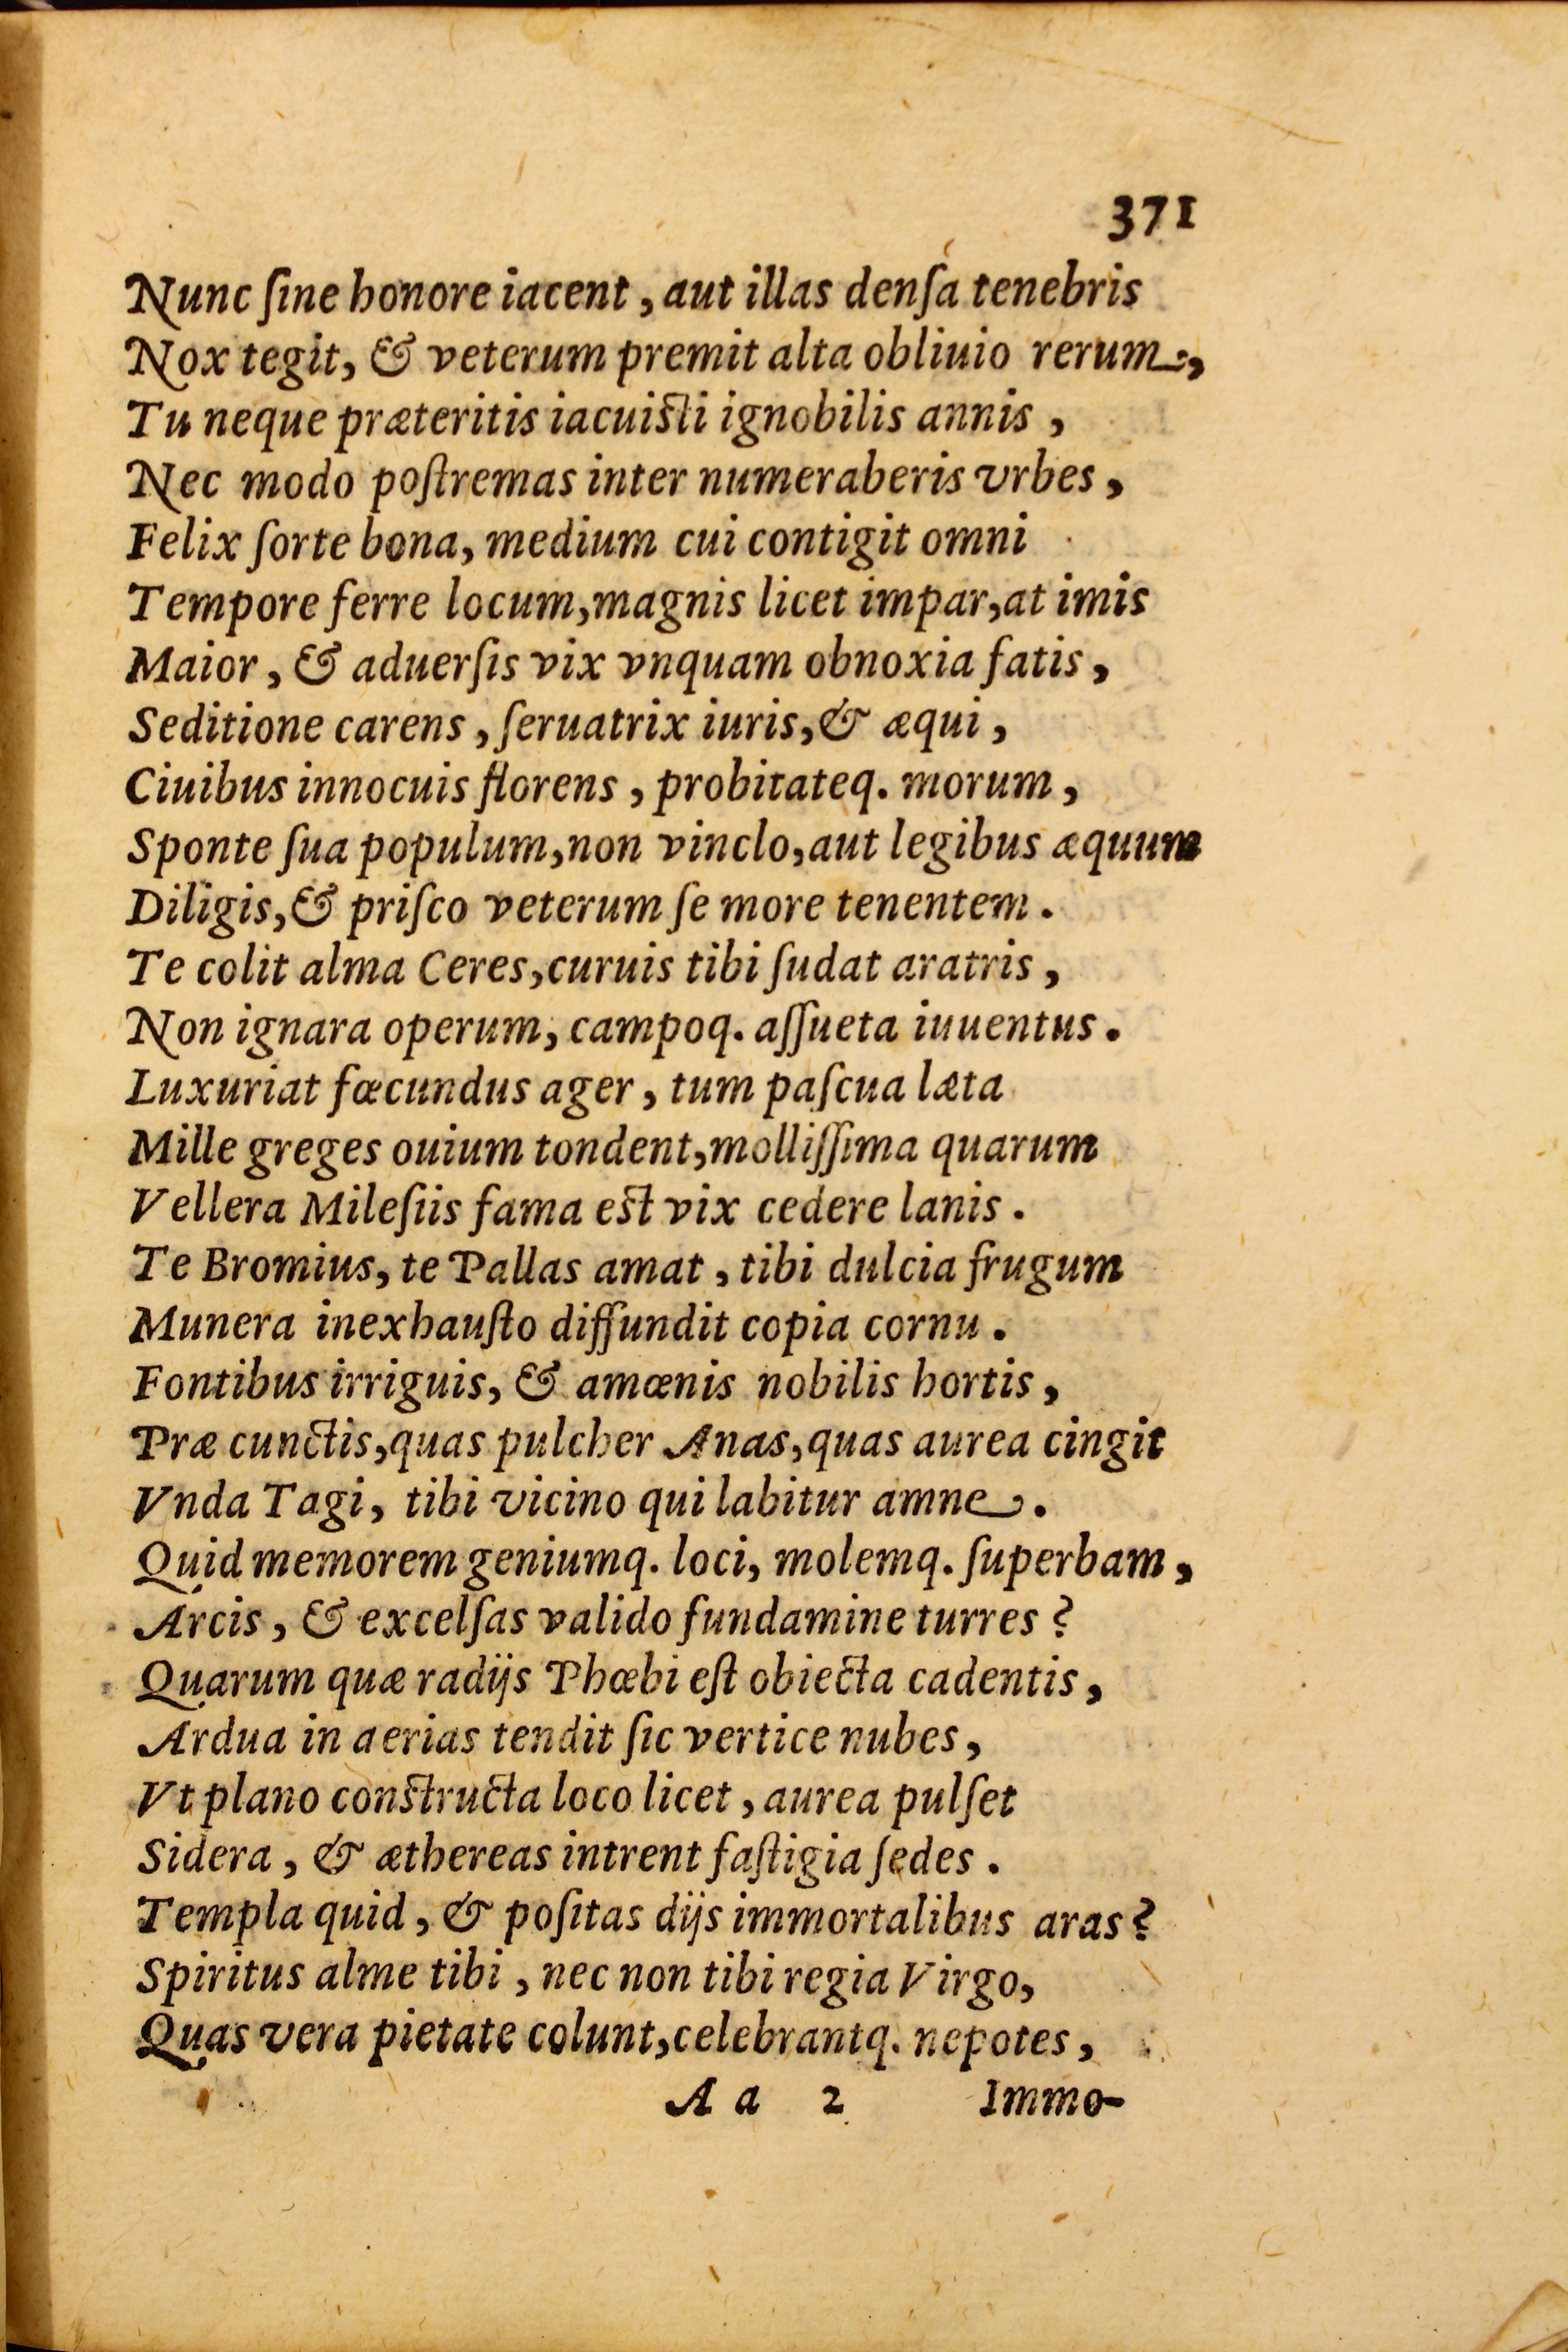 371
Nunc ſine honore iacent, aut illas denſa tenebris
Nox tegit, & veterum premit alta obliuio rerum,
Tu neque præteritis iacuiſti ignobilis annis,
Nec modo poſtremas inter numeraberis vrbes,
Felix ſorte bona, medium cui contigit omni
Tempore ferre locum, magnis licet impar, at imis
Maior, & aduerſis vix vnquam obnoxia fatis,
Seditione carens, ſeruatrix iuris, & æqui,
Ciuibus innocuis florens, probitateq. morum,
Sponte ſua populum, non vinclo, aut legibus æquum
Diligis, & priſco veterum ſe more tenentem.
Te colit alma Ceres, curuis tibi ſudat aratris,
Non ignara operum, campoq. aſſueta iuuentus.
Luxuriat fœcundus ager, tum paſcua læta
Mille greges ouium tondent, molliſſima quarum
Vellera Mileſiis fama eſt vix cedere lanis.
Te Bromius, te Pallas amat, tibi dulcia frugum
Munera inexhauſto diffundit copia cornu.
Fontibus irriguis, & amœnis nobilis hortis,
Præ cunctis, quas pulcher Anas, quas aurea cingit
Vnda Tagi, tibi vicino qui labitur amne.
Quid memorem geniumq. loci, molemq. ſuperbam,
Arcis, & excelſas valido fundamine turres?
Quarum quæ radijs Phœbi eſt obiecta cadentis,
Ardua in aerias tendit ſic vertice nubes,
Vt plano conſtructa loco licet, aurea pulſet
Sidera, & æthereas intrent faſtigia ſedes.
Templa quid, & poſitas dijs immortalibus aras?
Spiritus alme tibi, nec non tibi regia Virgo,
Quas vera pietate colunt, celebrantq. nepotes,
A a 2 Immo-